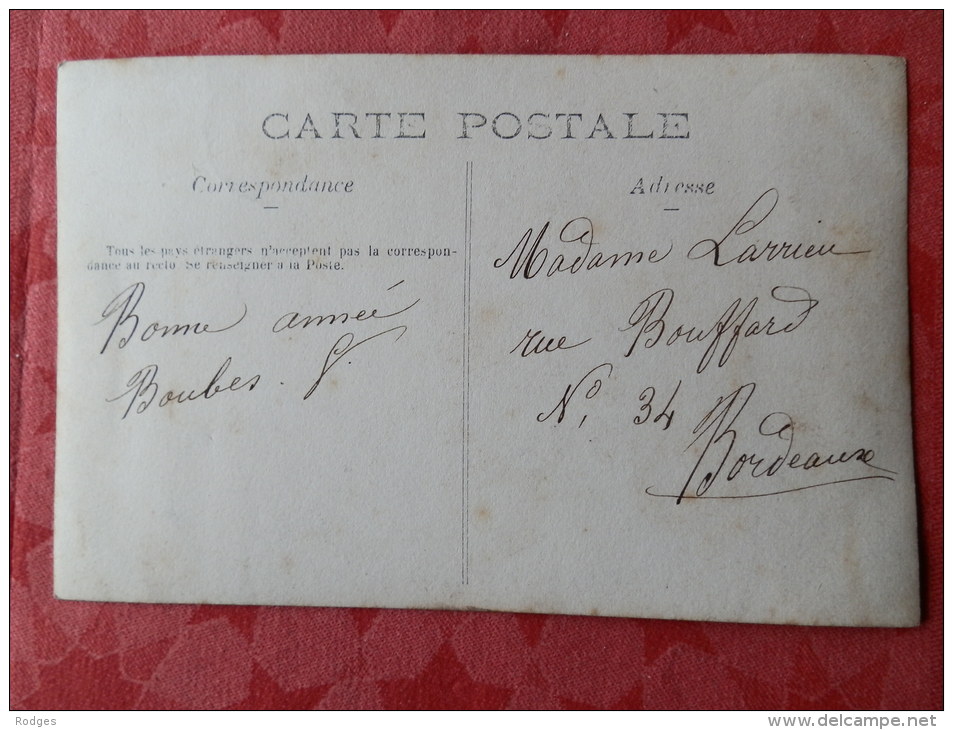 CARTE POSTALE
Correspondance
Tous les pays étrangers n'acceptent pas la correspon-
dance au recto. Se renseigner à la Poste.
Bonne année
Boubes. G.
Adresse
Madame Larrieu
rue Bouffard
No, 34
Bordeaux
Rodges
www.delcampe.net